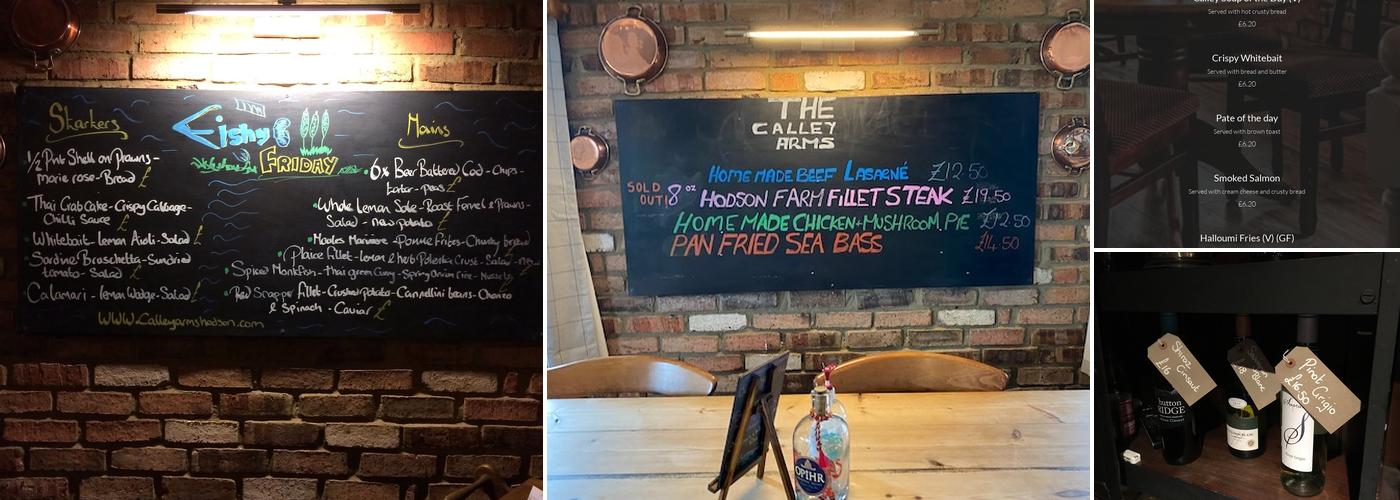 Starkers
Fishy
FRIDAY
Mains
1/2 Pint Shell on Prawns -
marie rose - Bread £
Thai Crab Cake - Crispy Cabbage -
Chilli Sauce £
Whitebait - Lemon Aioli - Salad £
Sardine Bruschetta - Sundried
tomato - Salad £
Calamari - lemon Wedge - Salad £
6x Beer Battered Cod - Chips -
tartar - peas £
Whole Lemon Sole - Roast Fennel & Prawns -
Salad - new potato £
Moules Mariniere - Pomme Frites - Chunky bread
Plaice fillet - Lemon & herb Polenta Crust - Salad - new
Spiced Monkfish - Thai green Curry - Spring Onion rice - Mussels
Red Snapper fillet - Crushed Potato - Cannellini beans - Chorizo
& Spinach - Caviar £
WWW.Calleyarmshodson.com
THE
CALLEY
ARMS
HOME MADE BEEF LASARNÉ £12.50
SOLD
OUT! 8oz HODSON FARM FILLET STEAK £19.50
HOME MADE CHICKEN + MUSHROOM PIE £12.50
PAN FRIED SEA BASS £14.50
OPIHR
Calley Soup of the Day (V)
Served with hot crusty bread
£6.20
Crispy Whitebait
Served with bread and butter
£6.20
Pate of the day
Served with brown toast
£6.20
Smoked Salmon
Served with cream cheese and crusty bread
£6.20
Halloumi Fries (V) (GF)
Shiraz
Cinsaut
£16
Blanc
Pinot Grigio
£16.50
button
RIDGE